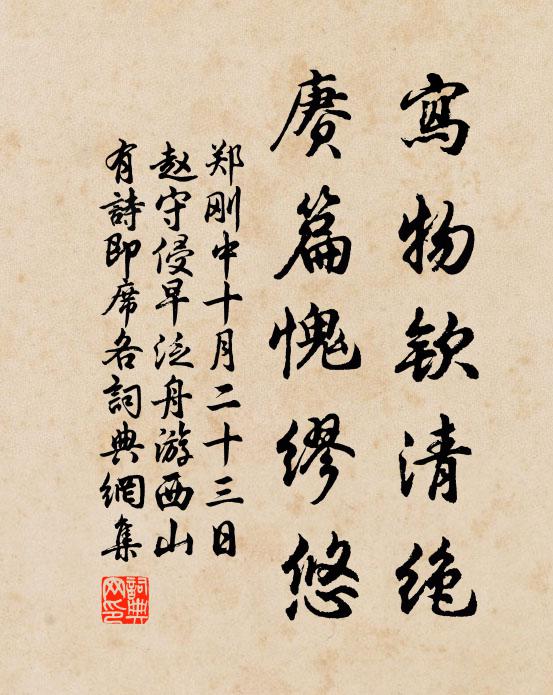 寫物欽清绝
赓篇愧缪悠
郑刚中十月二十三日
赵守侵早泛舟游西山
有詩即席各詞典網集
詞典网印